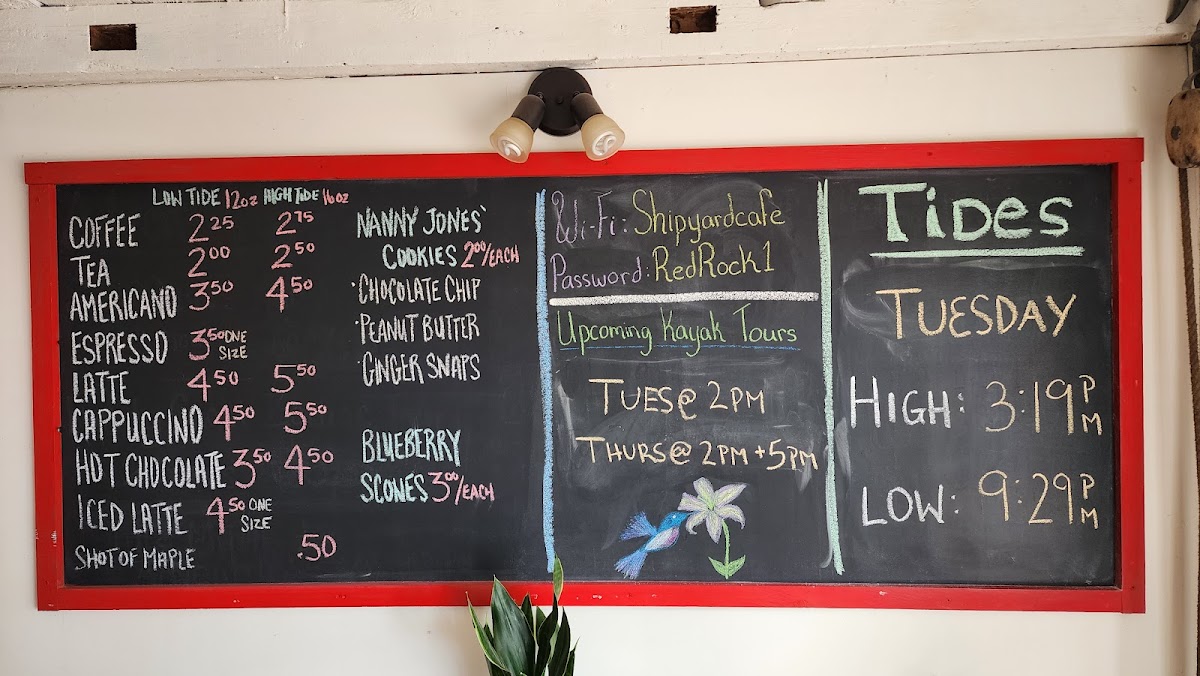 LOW TIDE 12oz HIGH TIDE 16oz
COFFEE 2.25 2.75
TEA 2.00 2.50
AMERICANO 3.50 4.50
ESPRESSO 3.50 ONE SIZE
LATTE 4.50 5.50
CAPPUCCINO 4.50 5.50
HOT CHOCOLATE 3.50 4.50
ICED LATTE 4.50 ONE SIZE
SHOT OF MAPLE .50
NANNY JONES'
COOKIES 2.00/EACH
·CHOCOLATE CHIP
·PEANUT BUTTER
·GINGER SNAPS
BLUEBERRY
SCONES 3.00/EACH
Wi-Fi: Shipyardcafe
Password: RedRock1
Upcoming Kayak Tours
TUES@ 2PM
THURS@ 2PM + 5PM
TIDES
TUESDAY
HIGH: 3:19 PM
LOW: 9:29 PM